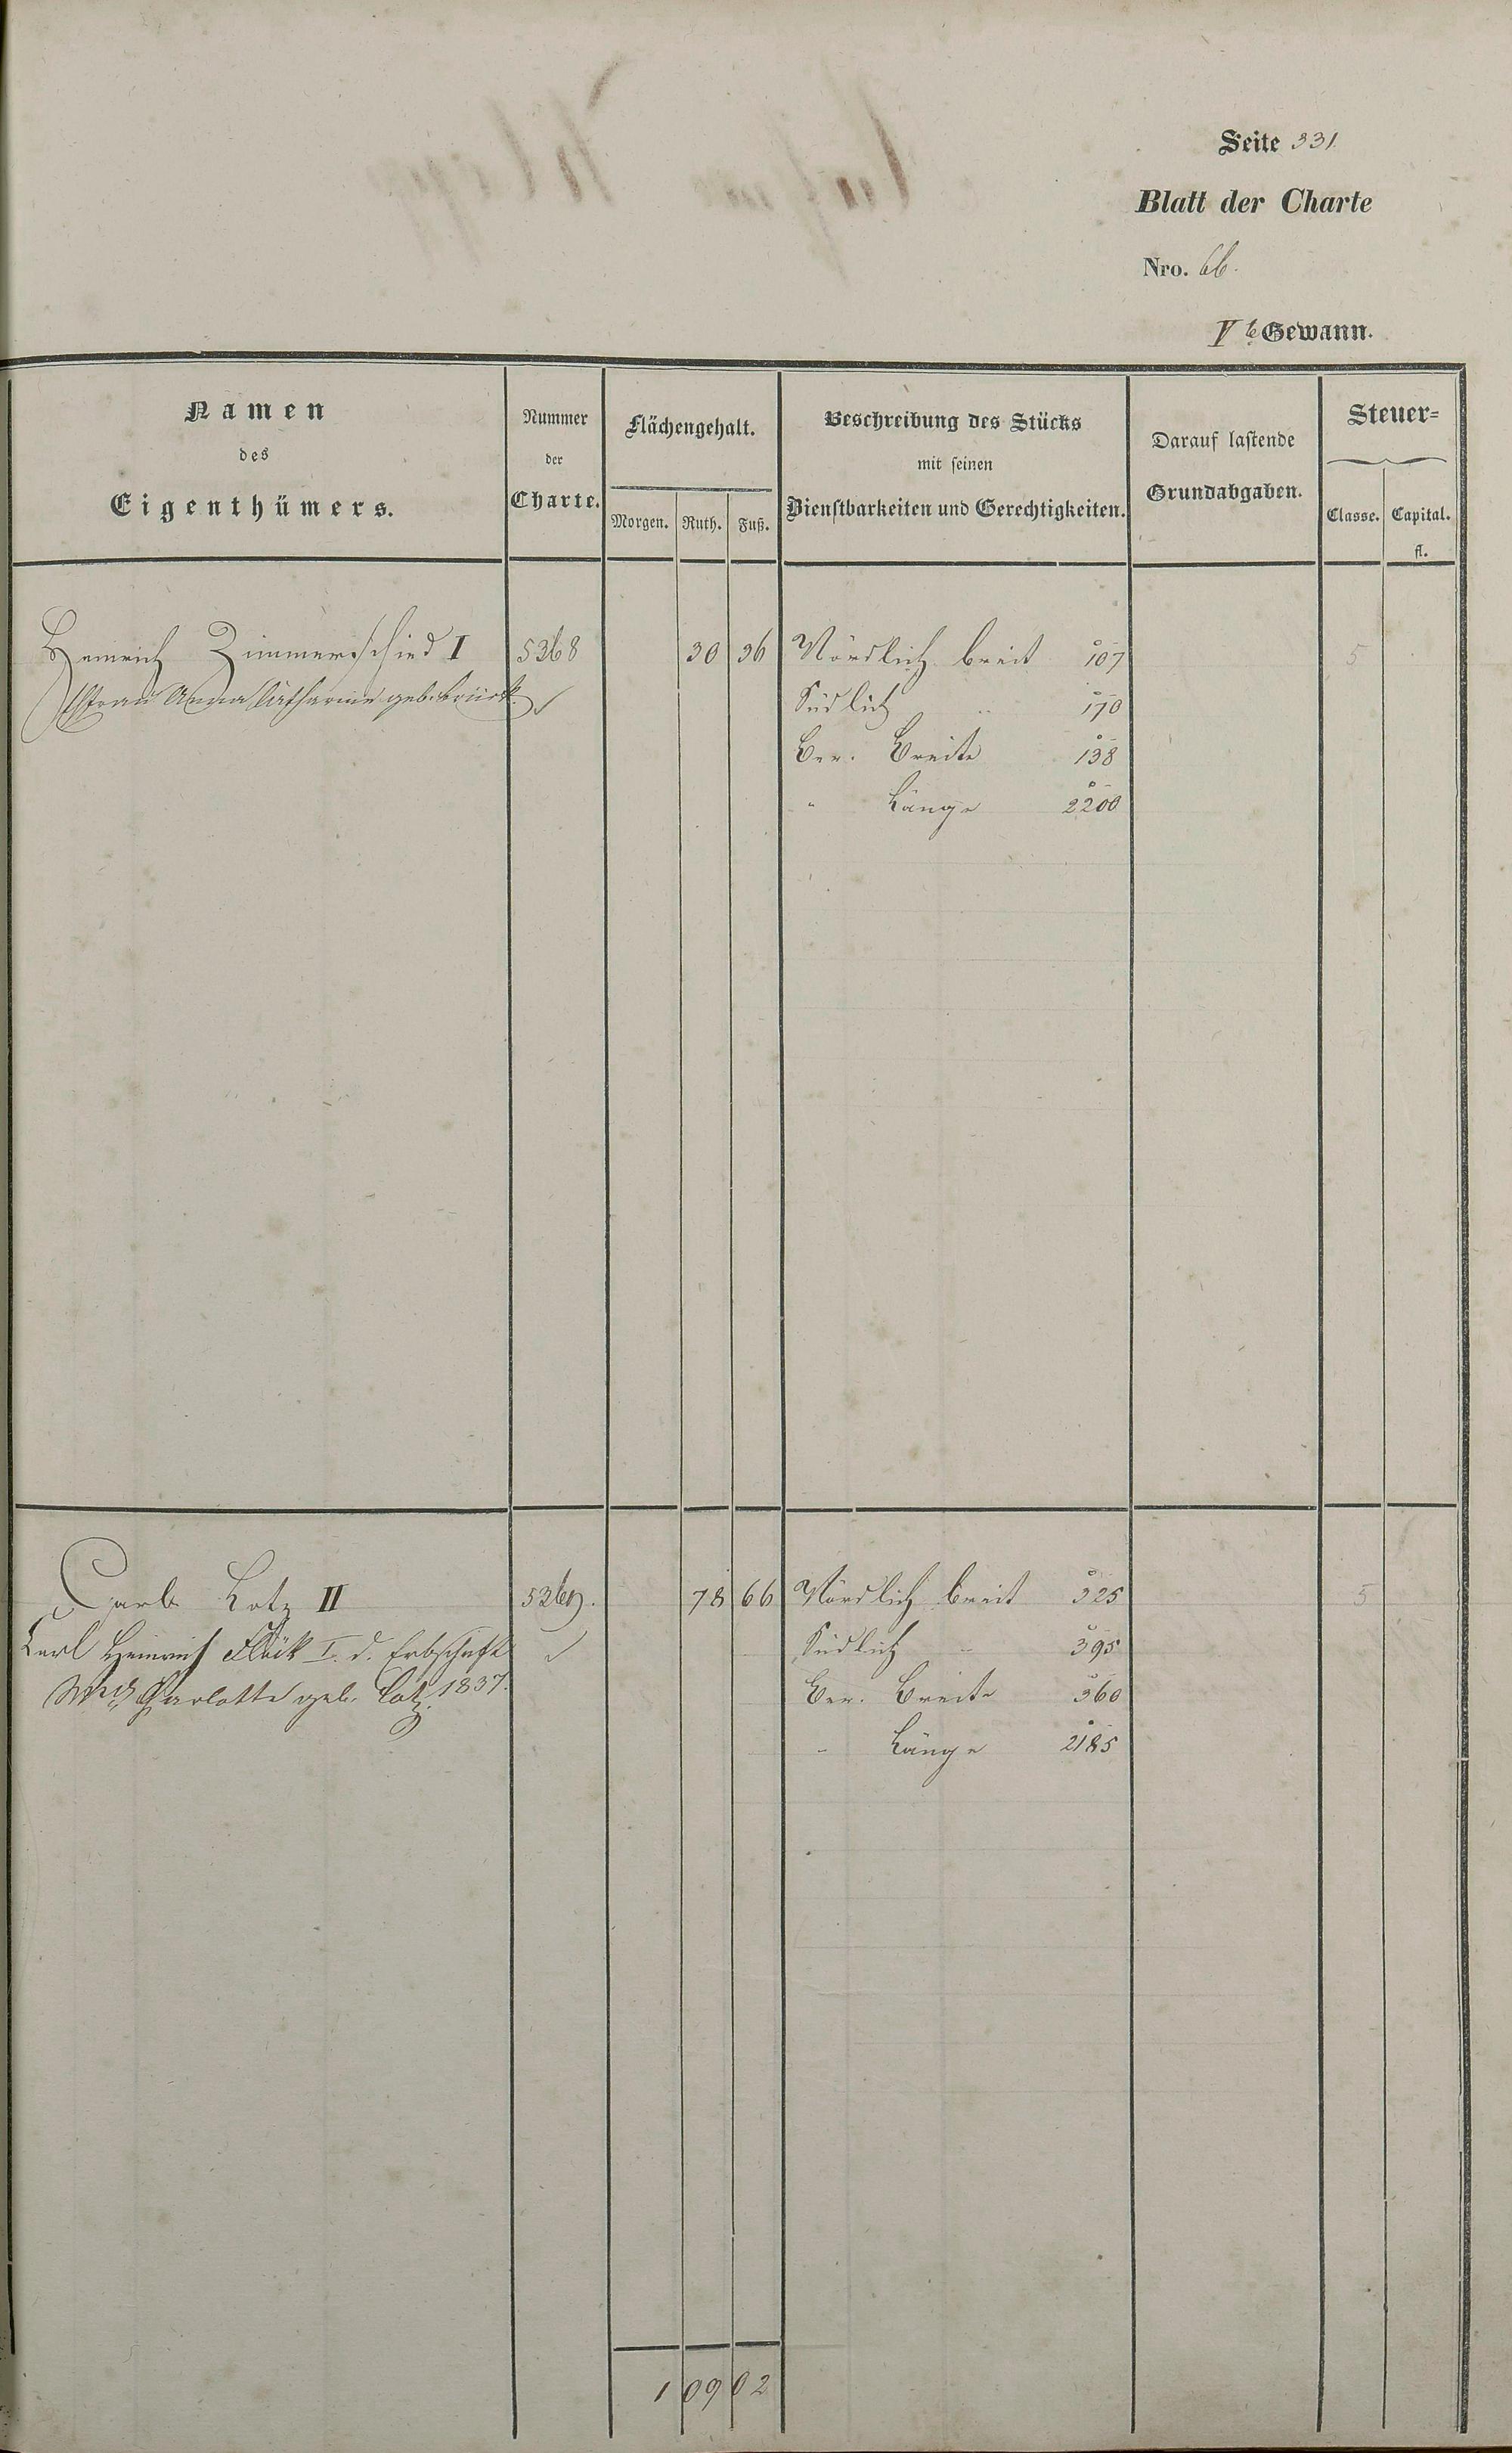 Seite 331
Blatt der Charte
Nro. 66.
Vte Gewann.
Namen
des
Eigenthümers.
Nummer
der
Charte.
Flächengehalt.
Morgen. Ruth. Fuß.
Beschreibung des Stücks
mit seinen
Dienstbarkeiten und Gerechtigkeiten.
Darauf lastende
Grundabgaben.
Steuer-
Classe. Capital.
fl.
Heinrich Zimmerschied I 5368 30 36 Nördlich breit 107 5
Frau Anna Catharine geb. Brück Südlich " 170
Ber. Breite 138
" Länge 2200
Carl Lotz II 5369. 78 66 Nördlich breit 325 5
Carl Heinrich Flöck I. d. Erbschaft Südlich " 395
Charlotte geb. Lotz. 1837. Ber. Breite 360
" Länge 2185
1 09 02